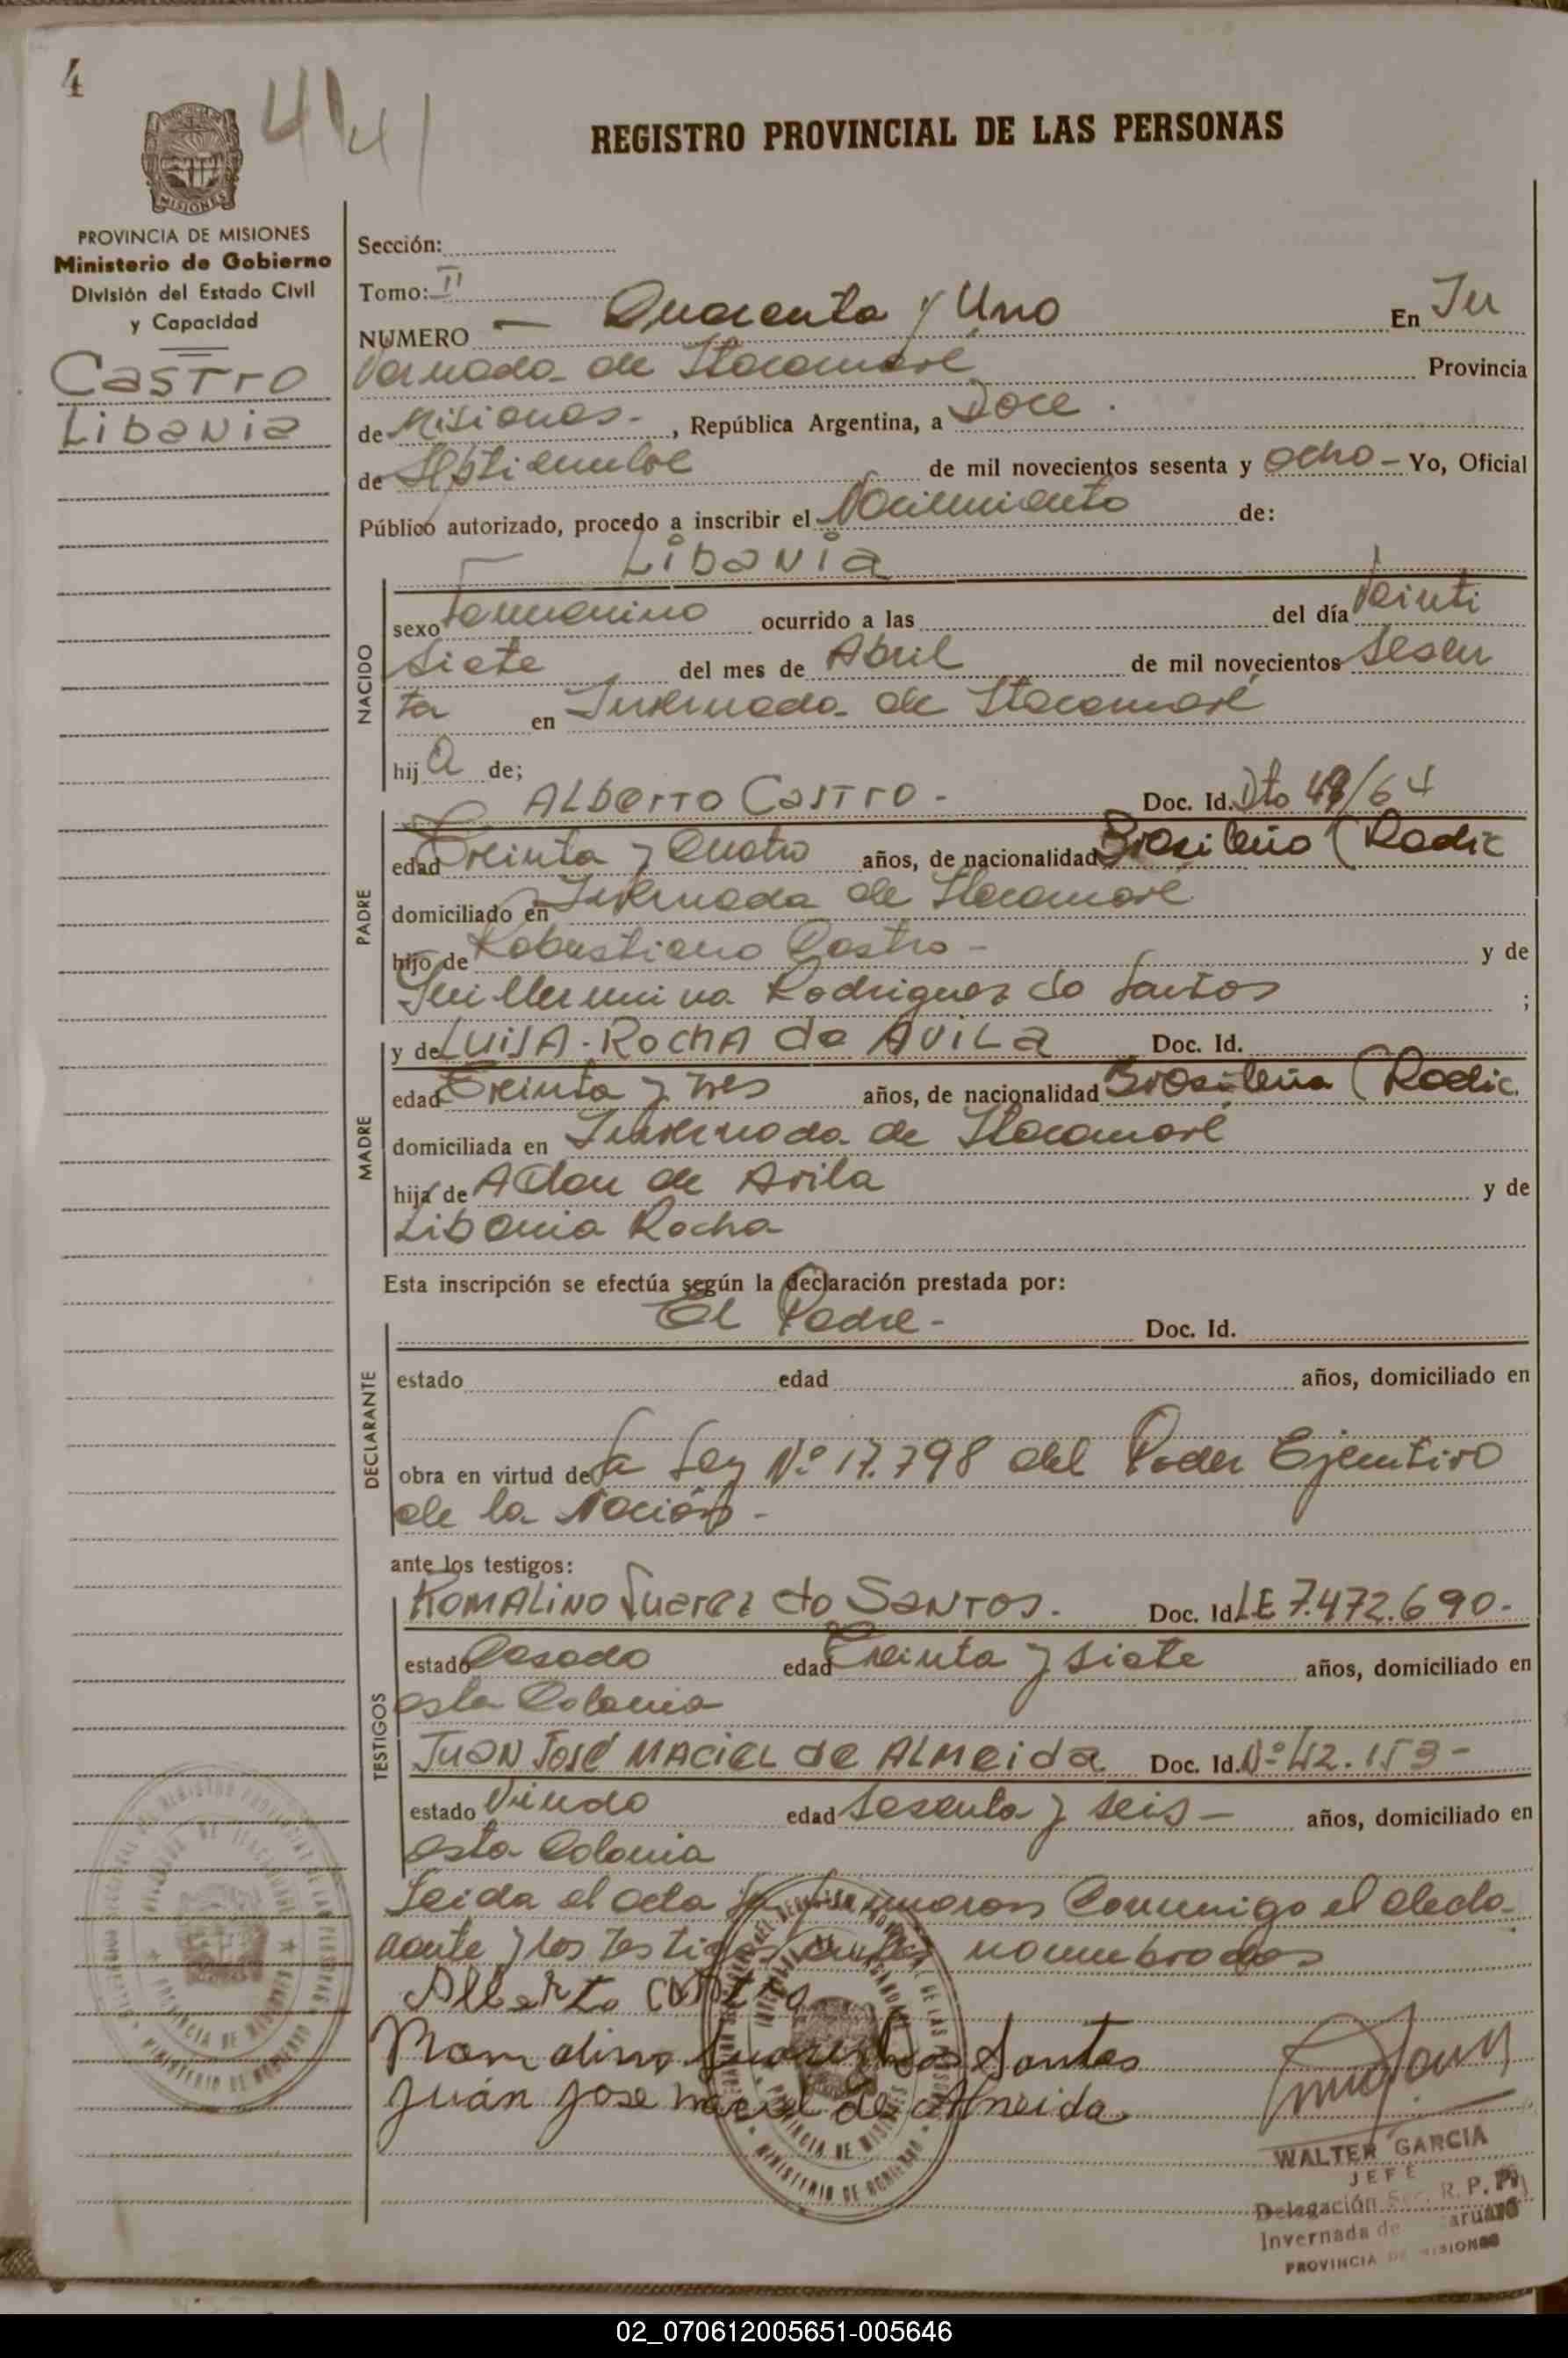 4
41 41
REGISTRO PROVINCIAL DE LAS PERSONAS
MISIONES
PROVINCIA DE MISIONES
Ministerio de Gobierno
División del Estado Civil
y Capacidad
CASTRO
Libania
Sección:
Tomo: II
NUMERO — Cuarenta y Uno En In
vernada de Itacaruaré Provincia
de Misiones- , República Argentina, a Doce
de Septiembre de mil novecientos sesenta y ocho - Yo, Oficial
Público autorizado, procedo a inscribir el Nacimiento de:
Libania
NACIDO
sexo Femenino ocurrido a las del día Veinti
Siete del mes de Abril de mil novecientos Sesen
ta en Invernada de Itacaruaré
hij a de;
PADRE
ALberto CASTRO - Doc. Id. Dto 49/64
edad Treinta y Cuatro años, de nacionalidad Brasileño (Radic
domiciliado en Invernada de Itacaruaré
hijo de Robustiano Castro - y de
Guillermina Rodriguez do Santos ;
MADRE
y de LUISA-ROCHA de AVILA Doc. Id.
edad Treinta y Tres años, de nacionalidad Brasileña (Radic.
domiciliada en Invernada de Itacaruaré
hija de Adan de Avila y de
Libania Rocha
Esta inscripción se efectúa según la declaración prestada por:
DECLARANTE
El Padre - Doc. Id.
estado edad años, domiciliado en
obra en virtud de la Ley Nº 17.798 del Poder Ejecutivo
de la Nación -
ante los testigos:
TESTIGOS
ROMALINO Suarez do SANTOS. Doc. Id. LE 7.472.690-
estado Casado edad Treinta y siete años, domiciliado en
esta Colonia
JUAN José MACIEL de ALMEIDA Doc. Id. Nº 42.153-
estado Viudo edad Sesenta y seis - años, domiciliado en
esta Colonia
Leida el acta la firmaron Conmigo el decla-
rante y los testigos antes nombrados
Alberto Castro
Romalino Suarez dos Santos
Juán jose maciel de Almeida
WALTER GARCIA
JEFE
Delegación Sec. R. P. P.
Invernada de
PROVINCIA DE MISIONES
02_070612005651-005646